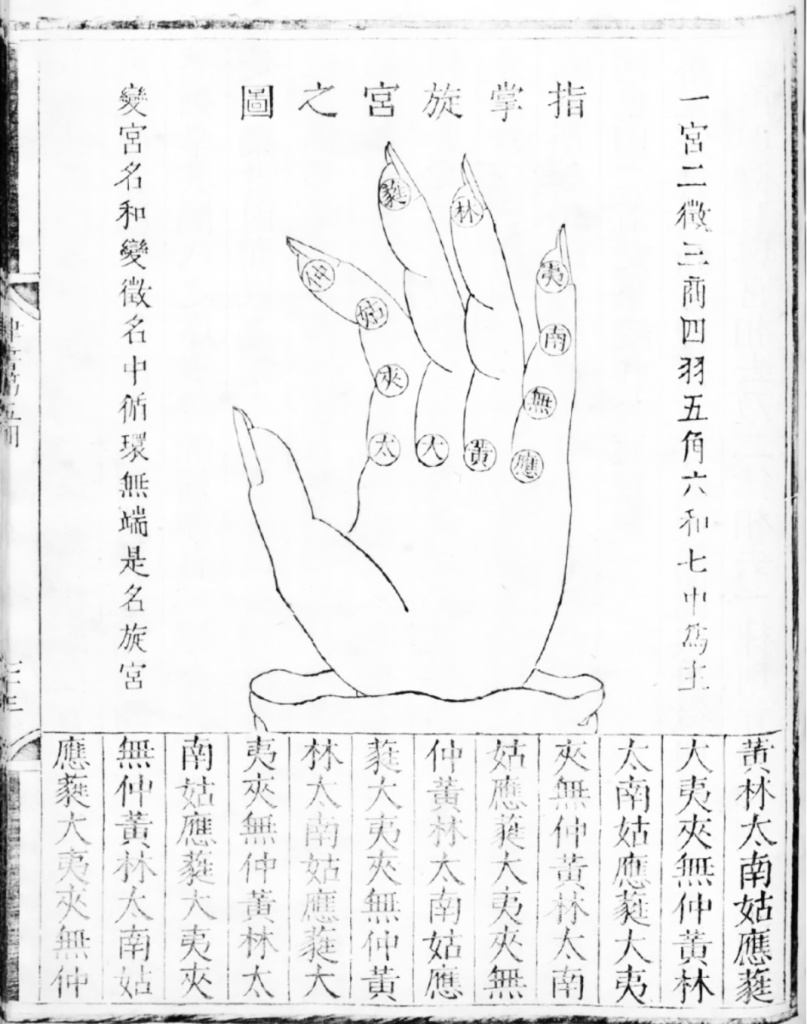 指掌旋宮之圖
一宮二徵三商四羽五角六和七中爲主
蕤
林
仲
夷
姑
南
夾
無
太
大
黃
應
變宮名和變徵名中循環無端是名旋宮
黃林太南姑應蕤
大夷夾無仲黃林
太南姑應蕤大夷
夾無仲黃林太南
姑應蕤大夷夾無
仲黃林太南姑應
蕤大夷夾無仲黃
林太南姑應蕤大
夷夾無仲黃林太
南姑應蕤大夷夾
無仲黃林太南姑
應蕤大夷夾無仲